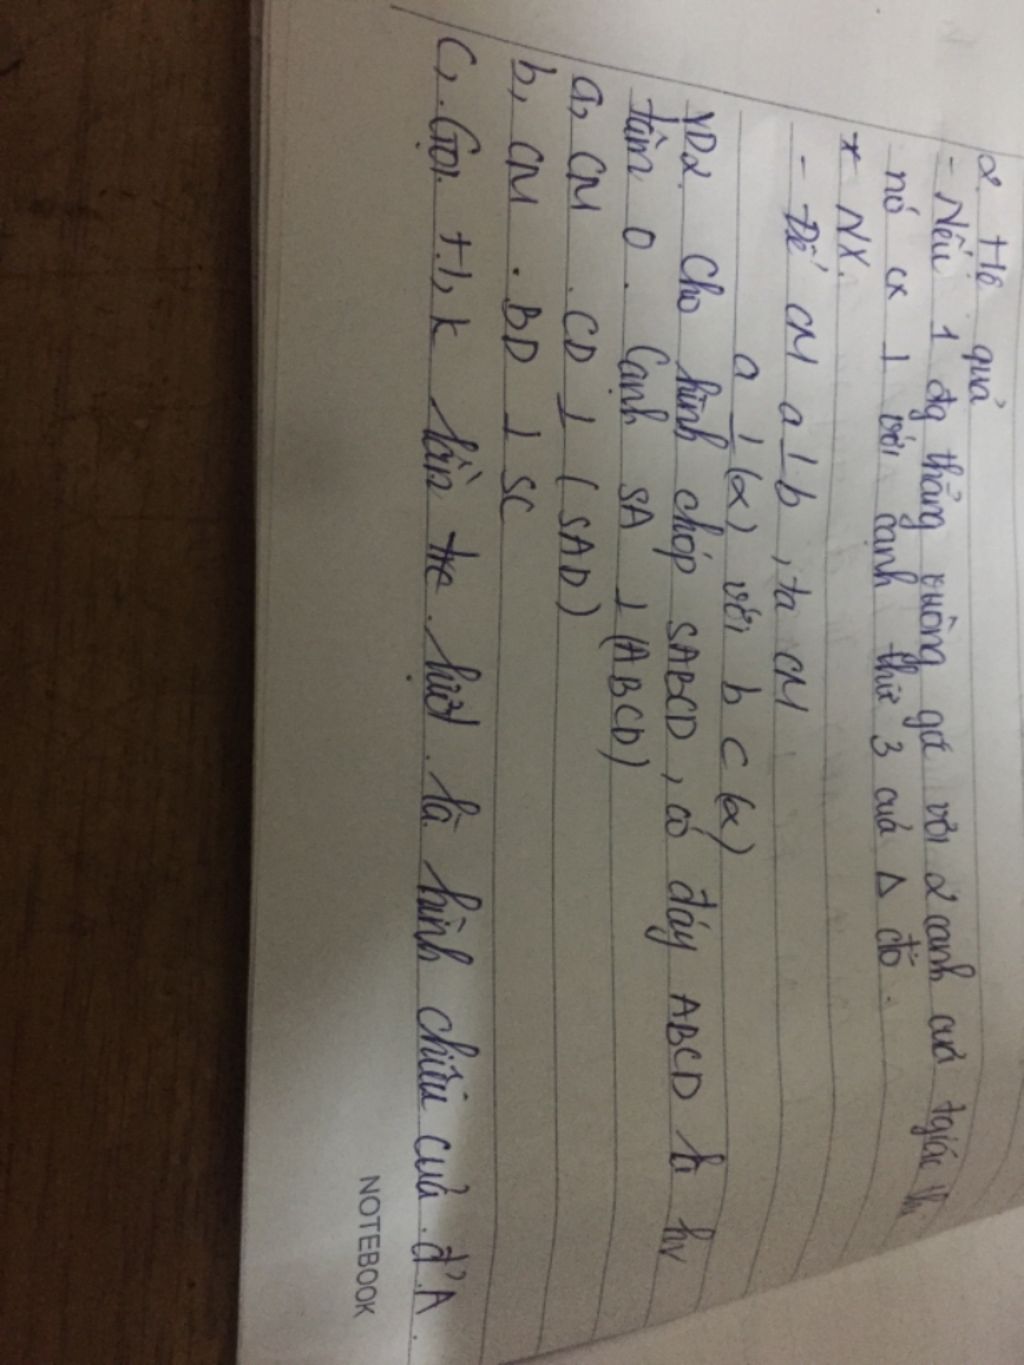 2. Hệ quả
- Nếu 1 đg thẳng vuông gó với 2 canh cuả tgiác thì
nó cx ⊥ với cạnh thứ 3 cuả Δ đó.
* NX.
- Để CM a ⊥ b, ta CM
a ⊥ (α) với b ⊂ (α)
VD2. Cho hình chóp SABCD, có đáy ABCD là hv
tâm O. Cạnh SA ⊥ (ABCD)
a, CM. CD ⊥ (SAD)
b, CM. BD ⊥ SC
c, Gọi H, I, K lần lượt là hình chiếu cuả đ' A.
NOTEBOOK